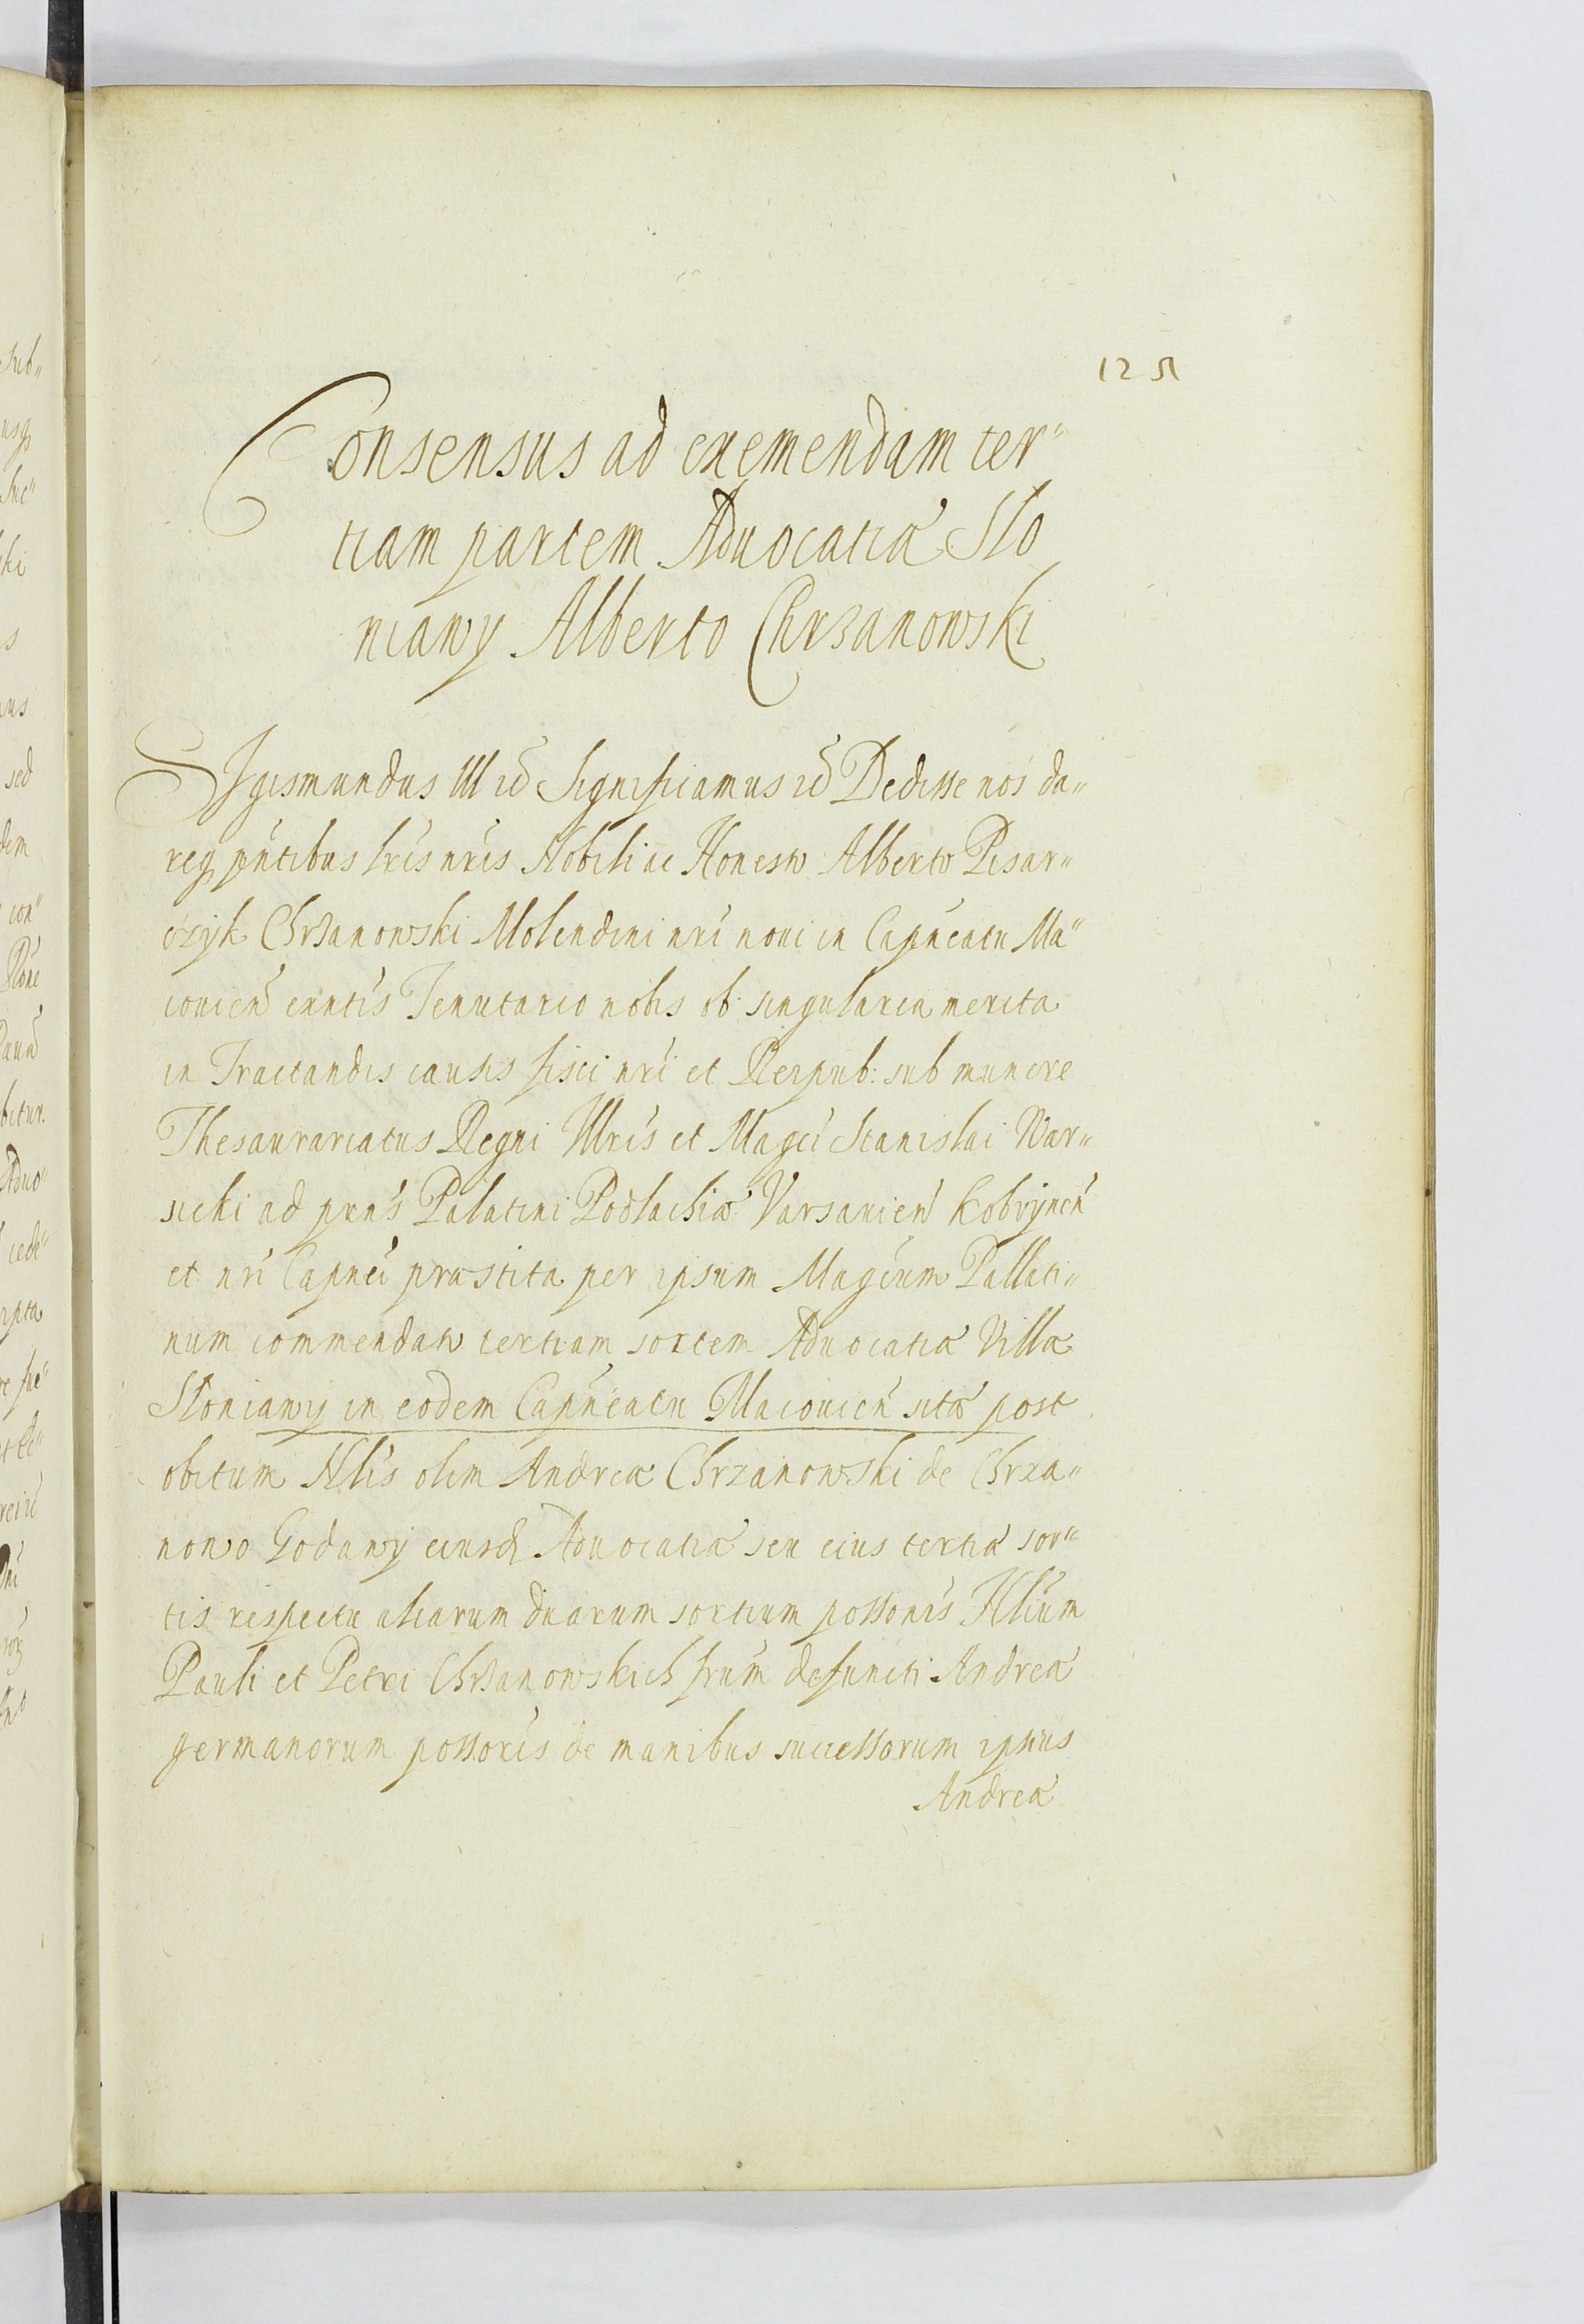 125
Consensus ad exemendam ter"
tiam partem Aduocatiæ Slo
niawy Alberto Chrzanowski
Sigismundus III etc̃ Significamus etc̃ Dedisse nos da"
req̃ pñtibus lris nris Nobili ac Honesto Alberto Pisar"
czyk Chrzanowski Molendini nri noui in Capñeatu Ma"
couien̄ exñtis Tenutario nobis ob singularia merita
in Tractandis causis fisci nri et Reipub: sub munere
Thesaurariatus Regni Illris et Magci Stanislai War"
sicki ad prñs Palatini Podlachiæ Varsauien̄ Kobrynen̄
et nri Capnei præstita per ipsum Magcum Pallati"
num commendato tertiam sortem Aduocatiæ Villæ
Sloniawy in eodem Capñeatu Macouien̄ sitæ post
obitum Nlis olim Andreæ Chrzanowski de Chrza"
nowo Godawy eiusd̃ Aduocatiæ seu eius tertiæ sor"
tis respectu aliarum duarum sortium possonis Nlium
Pauli et Petri Chrzanowskich frum defuncti Andreæ
germanorum possoris de manibus successorum ipsius
Andreæ